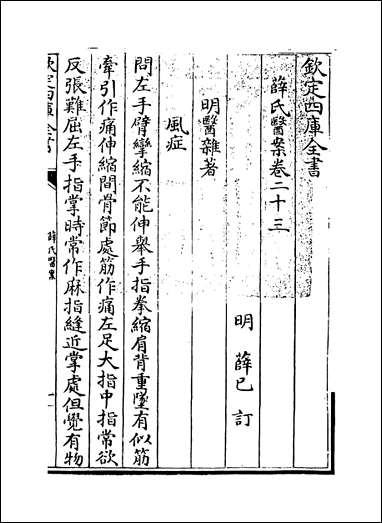 欽定四庫全書
薛氏醫案卷二十三
明 薛己 訂
明醫雜著
風症
問左手臂攣縮不能伸舉手指拳縮肩背重墜有似筋
牽引作痛伸縮間骨節處筋作痛左足大指中指常欲
反張難屈左手指掌時常作麻指縫近掌處但覺有物
欽定四庫全書
薛氏醫案
一